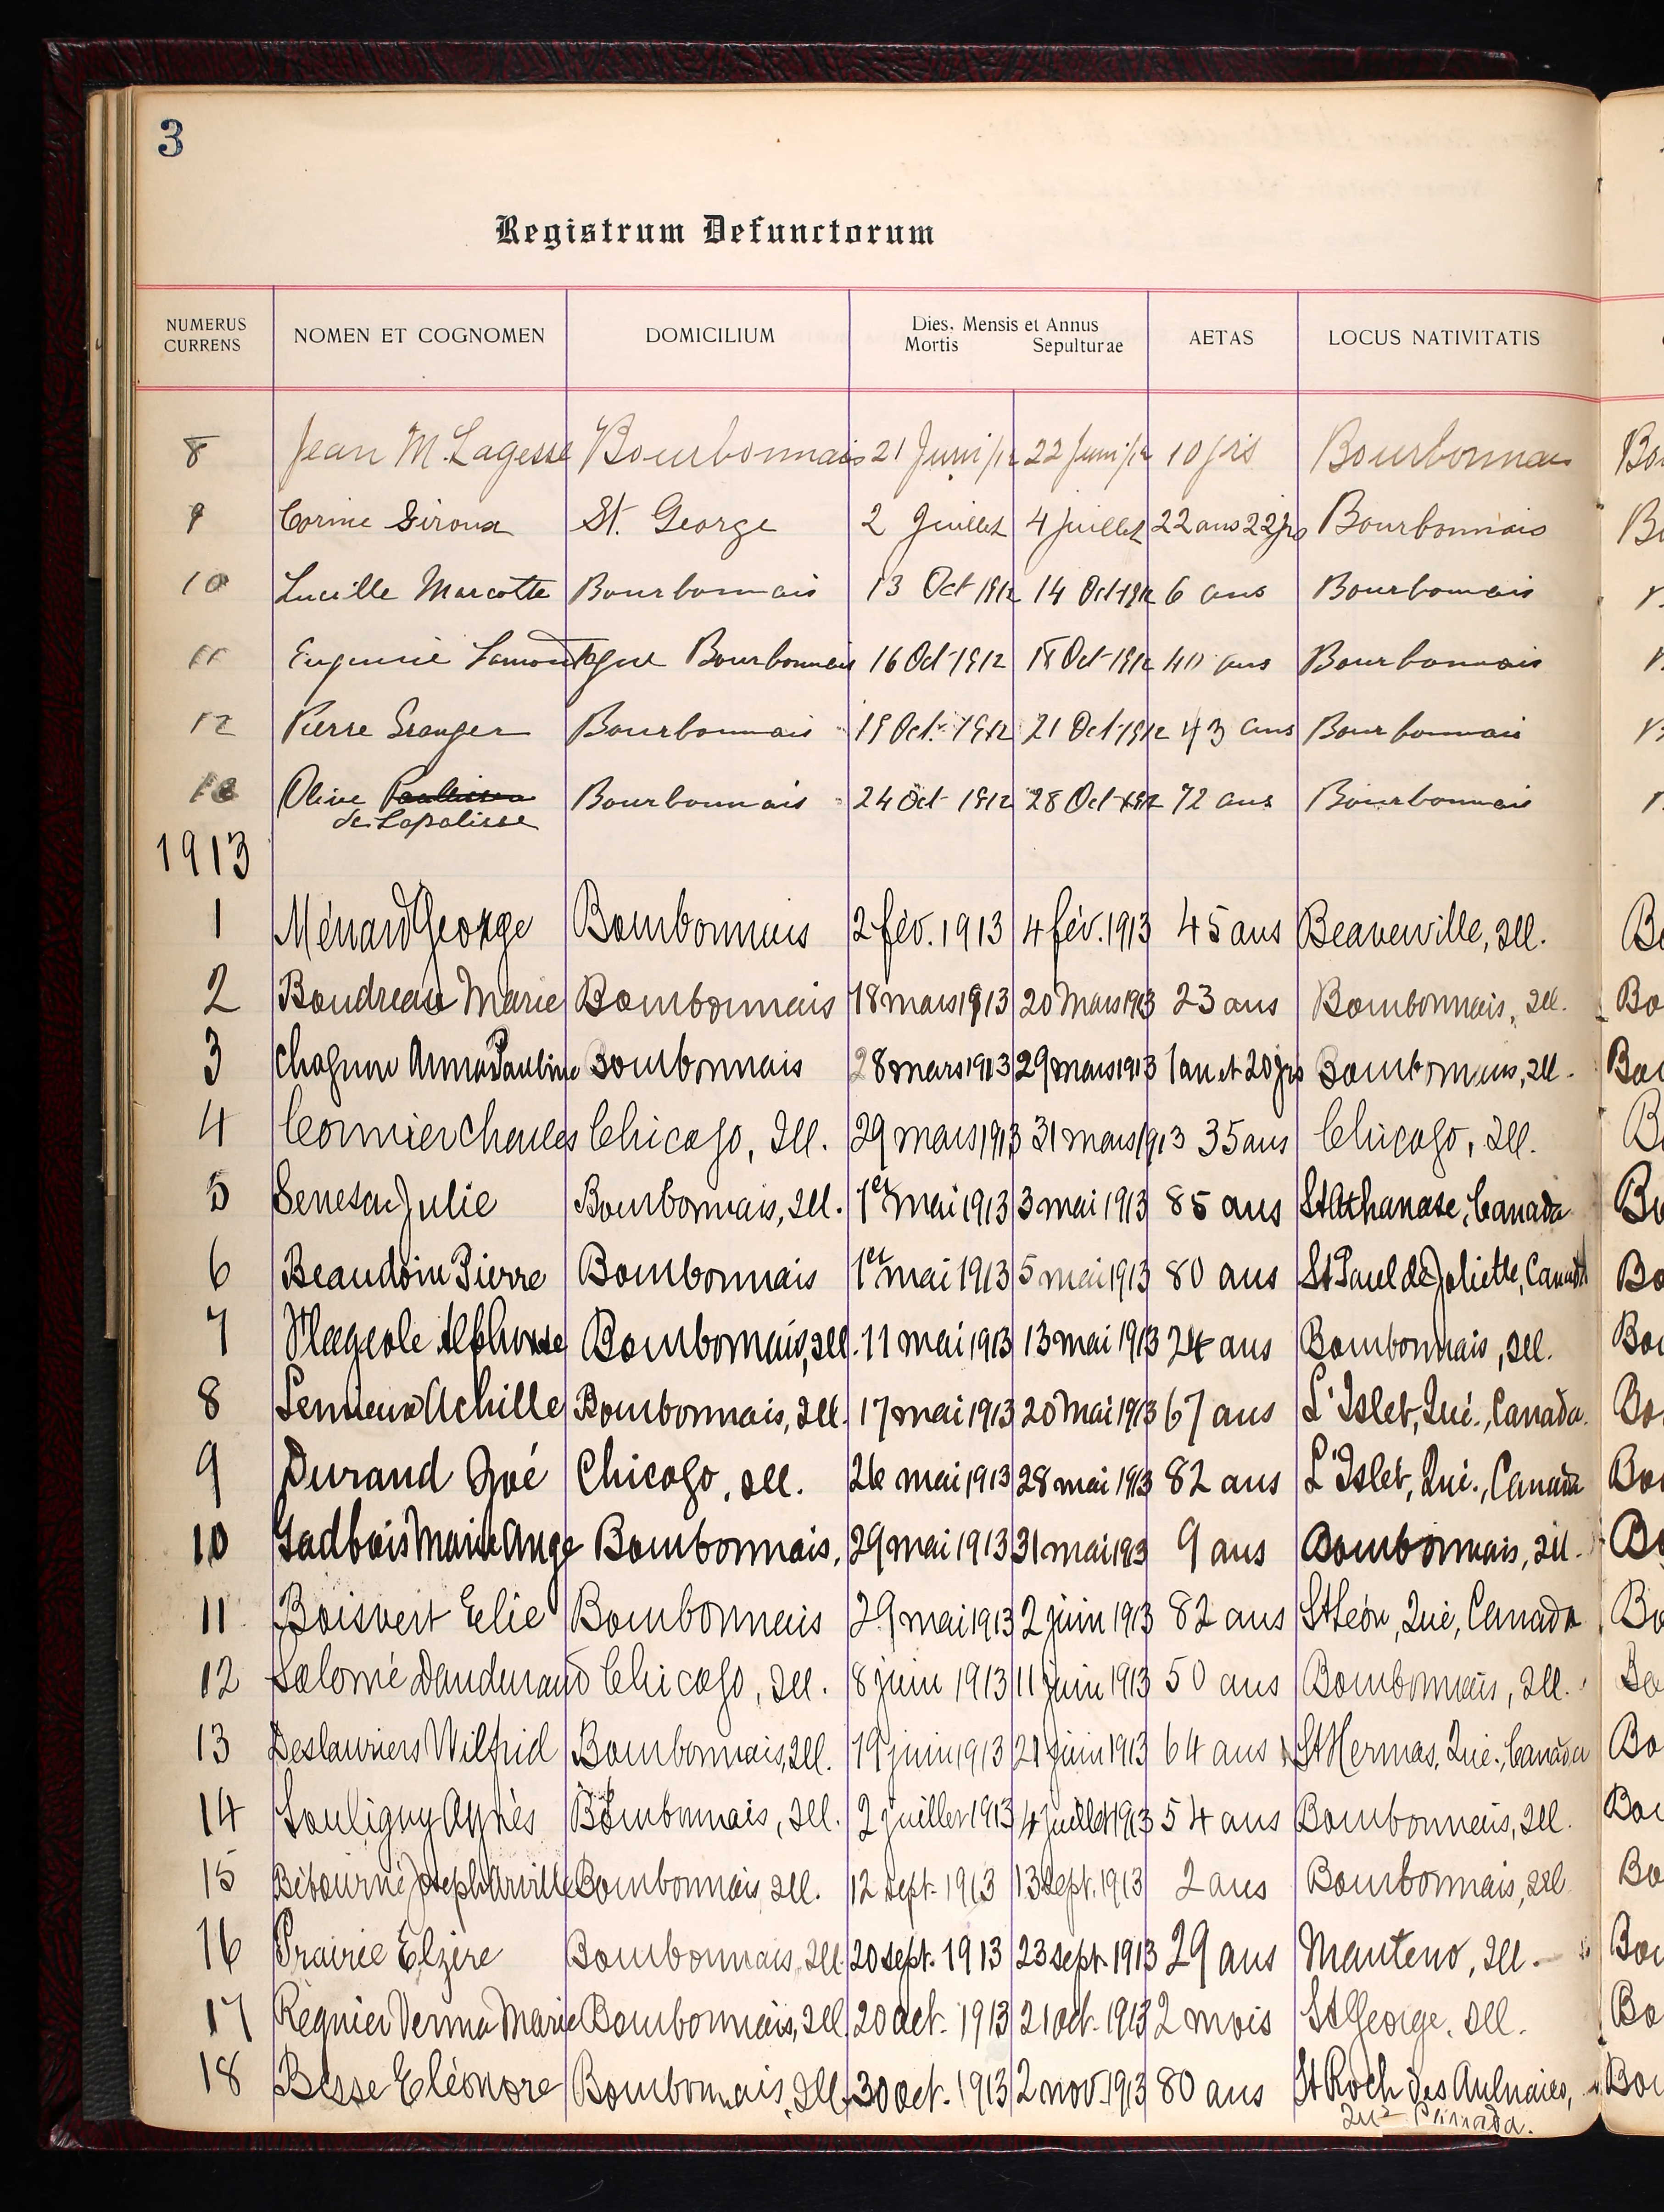 3
Registrum Defunctorum
NUMERUS CURRENS NOMEN ET COGNOMEN DOMICILIUM Dies, Mensis et Annus Mortis Sepulturae AETAS LOCUS NATIVITATIS
8 Jean M. Lagesse Bourbonnais 21 Juni/12 22 Juni/12 10 jrs Bourbonnais
9 Corine Giroux St. George 2 Juillet 4 juillet 22 ans 22 jrs Bourbonnais
10 Lucille Marcotte Bourbonnais 13 Oct 1912 14 Oct 1912 6 ans Bourbonnais
11 Eugenie Lamontagne Bourbonnais 16 Oct-1912 18 Oct-1912 40 ans Bourbonnais
12 Pierre Granger Bourbonnais 19 Oct. 1912 21 Oct 1912 43 ans Bourbonnais
13 Olive Bourbonnais 24 Oct 1912 28 Oct 1912 72 ans Bourbonnais
de Lapalisse
1913
1 Ménard George Bourbonnais 2 fév. 1913 4 fév. 1913 45 ans Beaverville, Ill.
2 Boudreau Marie Bourbonnais 18 mars 1913 20 Mars 1913 23 ans Bourbonnais, Ill.
3 Chagnon Anna Pauline Bourbonnais 28 mars 1913 29 mars 1913 1 an et 20 jrs Bourbonnais, Ill.
4 Cormier Charles Chicago, Ill. 29 mars 1913 31 mars 1913 35 ans Chicago, Ill.
5 Senesac Julie Bourbonnais, Ill. 1er mai 1913 3 mai 1913 85 ans St Athanase, Canada
6 Beaudoin Pierre Bourbonnais 1er mai 1913 5 mai 1913 80 ans St Paul de Joliette, Canada
7 Alphonse Bourbonnais, Ill. 11 mai 1913 13 mai 1913 24 ans Bourbonnais, Ill.
8 Lemieux Achille Bourbonnais, Ill. 17 mai 1913 20 Mai 1913 67 ans L'Islet, Qué., Canada.
9 Durand Zoé Chicago, Ill. 26 mai 1913 28 mai 1913 82 ans L'Islet, Qué., Canada
10 Gadbois Marie Ange Bourbonnais, 29 mai 1913 31 mai 1913 9 ans Bourbonnais, Ill.
11 Boisvert Elie Bourbonnais 29 mai 1913 2 juin 1913 82 ans St Léon, Qué, Canada
12 Salomé Dandurand Chicago, Ill. 8 juin 1913 11 juin 1913 50 ans Bourbonnais, Ill.
13 Deslauriers Wilfrid Bourbonnais, Ill. 19 juin 1913 21 juin 1913 64 ans St Hermas, Qué., Canada
14 Souligny Agnès Bourbonnais, Ill. 2 juillet 1913 4 juillet 1913 54 ans Bourbonnais, Ill.
15 Bétourné Joseph Arville Bourbonnais, Ill. 12 sept. 1913 13 sept. 1913 2 ans Bourbonnais, Ill.
16 Prairie Elzire Bourbonnais, Ill. 20 sept. 1913 23 sept. 1913 29 ans Manteno, Ill.
17 Régnier Verma Marie Bourbonnais, Ill. 20 oct. 1913 21 oct. 1913 2 mois St George, Ill.
18 Besse Eléonore Bourbonnais, Ill. 30 oct. 1913 2 nov. 1913 80 ans St Roch des Aulnaies,
Qué Canada.